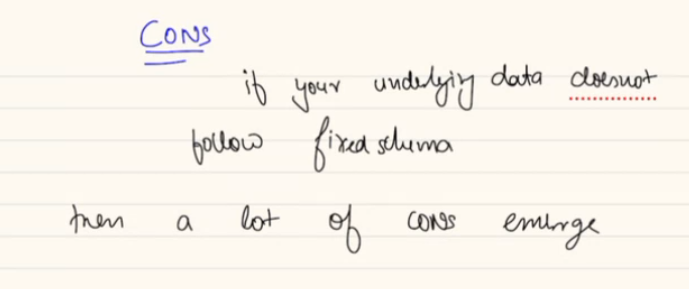 CONS
if your underlying data doesnot
follow fixed schema
then a lot of cons emerge